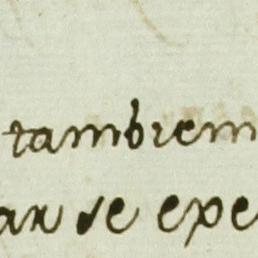 tambiem
ar se expe